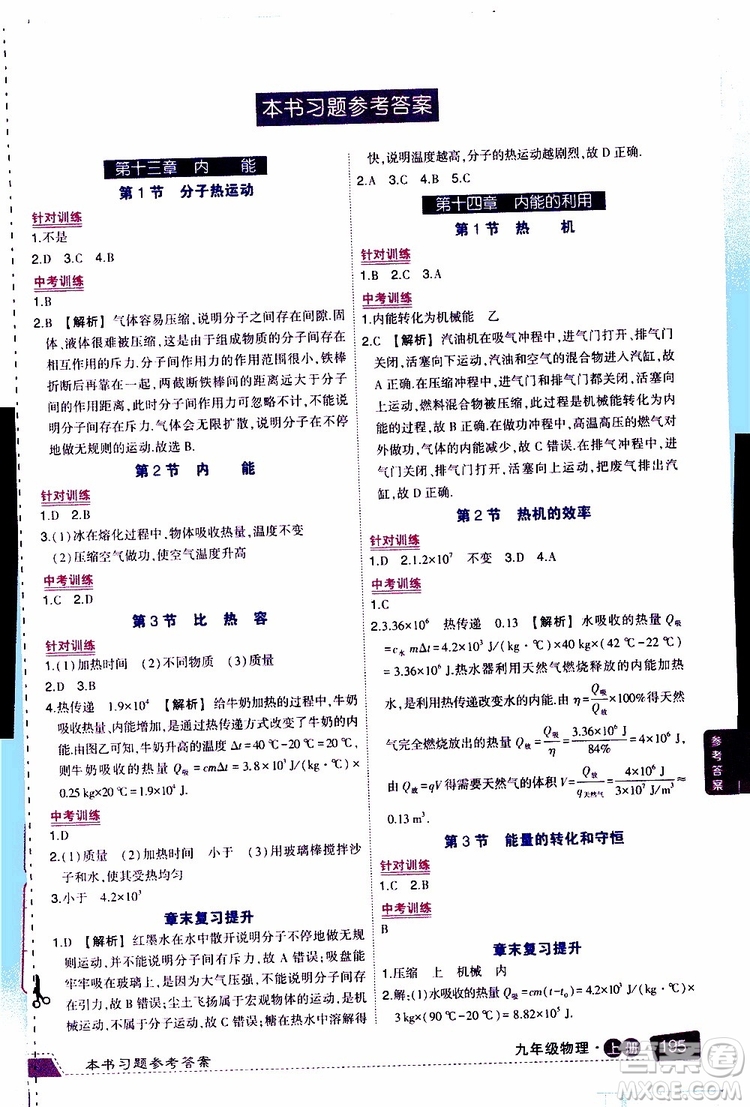 本书习题参考答案
第十三章 内 能
第1节 分子热运动
针对训练
1.不是
2.D 3.C 4.B
中考训练
1.B
2.B 【解析】气体容易压缩,说明分子之间存在间隙.固
体、液体很难被压缩,这是由于组成物质的分子之间存
在间相互作用的斥力.分子间作用力的作用范围很小,铁棒
折断后再靠在一起,两截断铁棒间的距离远大于分子
间的作用距离,此时分子间作用力可忽略不计,不能说
明分子间存在斥力.气体会无限扩散,说明分子在不停
地做无规则的运动.故选B.
第2节 内 能
针对训练
1.D 2.B
3.(1)冰在熔化过程中,物体吸收热量,温度不变
(2)压缩空气做功,使空气温度升高
中考训练
1.C 2.D
第3节 比 热 容
针对训练
1.(1)加热时间 (2)不同物质 (3)质量
2.C 3.A
4.热传递 1.9×10⁴ 【解析】给牛奶加热的过程中,牛奶
吸收热量,内能增加,故通过热传递方式改变了牛奶的内
能.由图乙可知,牛奶升高的温度Δt=40 ℃-20 ℃=20 ℃,
则牛奶吸收的热量Q吸=cmΔt=3.8×10³ J/(kg·℃)×
0.25 kg×20 ℃=1.9×10⁴ J.
中考训练
1.D
2.(1)质量 (2)升高的温度 小于 (3)用玻璃棒搅拌沙
子和水,使其受热均匀
3.小于 4.2×10³
章末复习提升
1.D 【解析】红墨水在水中散开说明分子在做无规则
运动,不能说明分子间存在引力,故A错误;吸盘能
牢牢吸在墙上,是因为大气压强,不能说明分子间存
在引力,故B错误;尘土飞扬属于宏观物体的运动,
不是分子的运动,故C错误;糖块在热水中溶解得
快,说明温度越高,分子的热运动越剧烈,故D正确.
2.A 3.A 4.B 5.C
第十四章 内能的利用
第1节 热 机
针对训练
1.B 2.C 3.A
中考训练
1.内能转化为机械能 乙
2.C 【解析】汽油机在吸气冲程中,进气门打开、排气门
关闭,活塞向下运动,汽油和空气的混合物进入汽缸,故
A正确.在压缩冲程中,进气门和排气门都关闭,活塞
向上运动,燃料混合物被压缩,此过程是机械能转化为
内能的过程,故B正确.在做功冲程中,高温高压的燃气
对外做功,气体的内能减少,故C错误.在排气冲程中,进
气门关闭,排气门打开,活塞向上运动,把废气排出汽
缸,故D正确.
第2节 热机的效率
针对训练
1.D 2.1.2×10⁷ 不变 3.D 4.A
中考训练
1.C
2.3.36×10⁶ 热传递 0.13 【解析】水吸收的热量Q吸
=c水mΔt=4.2×10³ J/(kg·℃)×40 kg×(42 ℃-22 ℃)
=3.36×10⁶ J.热水器利用天然气燃烧释放的内能加热
水,是利用热传递改变水的内能.由η=Q吸/Q放×100%得天然
气完全燃烧放出的热量Q放=Q吸/η=3.36×10⁶ J/84%=4×10⁶ J.
由Q放=qV得需要天然气的体积V=Q放/q天然气=4×10⁶ J/3×10⁷ J/m³≈
0.13 m³.
第3节 能量的转化和守恒
针对训练
1.C 2.B
中考训练
B
章末复习提升
1.压缩 上 机械 内
2.解:(1)水吸收的热量Q吸=cm(t-t₀)=4.2×10³ J/(kg·℃)×
参考答案
本书习题参考答案
九年级物理·上册
195
答案圈
MXQE.COM